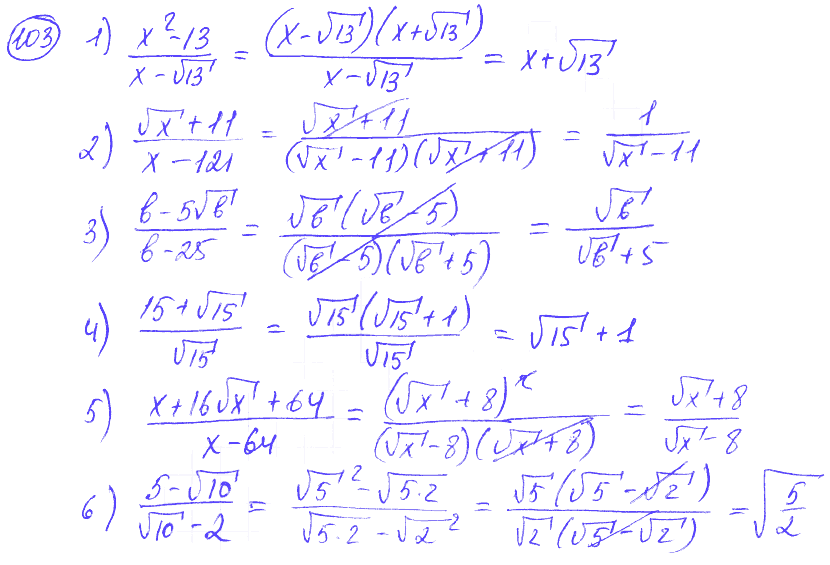 103 1) \frac{x^2-13}{x-\sqrt{13}} = \frac{(x-\sqrt{13})(x+\sqrt{13})}{x-\sqrt{13}} = x+\sqrt{13}
2) \frac{\sqrt{x}+11}{x-121} = \frac{\sqrt{x}+11}{(\sqrt{x}-11)(\sqrt{x}+11)} = \frac{1}{\sqrt{x}-11}
3) \frac{в-5\sqrt{в}}{в-25} = \frac{\sqrt{в}(\sqrt{в}-5)}{(\sqrt{в}-5)(\sqrt{в}+5)} = \frac{\sqrt{в}}{\sqrt{в}+5}
4) \frac{15+\sqrt{15}}{\sqrt{15}} = \frac{\sqrt{15}(\sqrt{15}+1)}{\sqrt{15}} = \sqrt{15}+1
5) \frac{x+16\sqrt{x}+64}{x-64} = \frac{(\sqrt{x}+8)^2}{(\sqrt{x}-8)(\sqrt{x}+8)} = \frac{\sqrt{x}+8}{\sqrt{x}-8}
6) \frac{5-\sqrt{10}}{\sqrt{10}-2} = \frac{\sqrt{5}^2-\sqrt{5·2}}{\sqrt{5·2}-\sqrt{2}^2} = \frac{\sqrt{5}(\sqrt{5}-\sqrt{2})}{\sqrt{2}(\sqrt{5}-\sqrt{2})} = \sqrt{\frac{5}{2}}